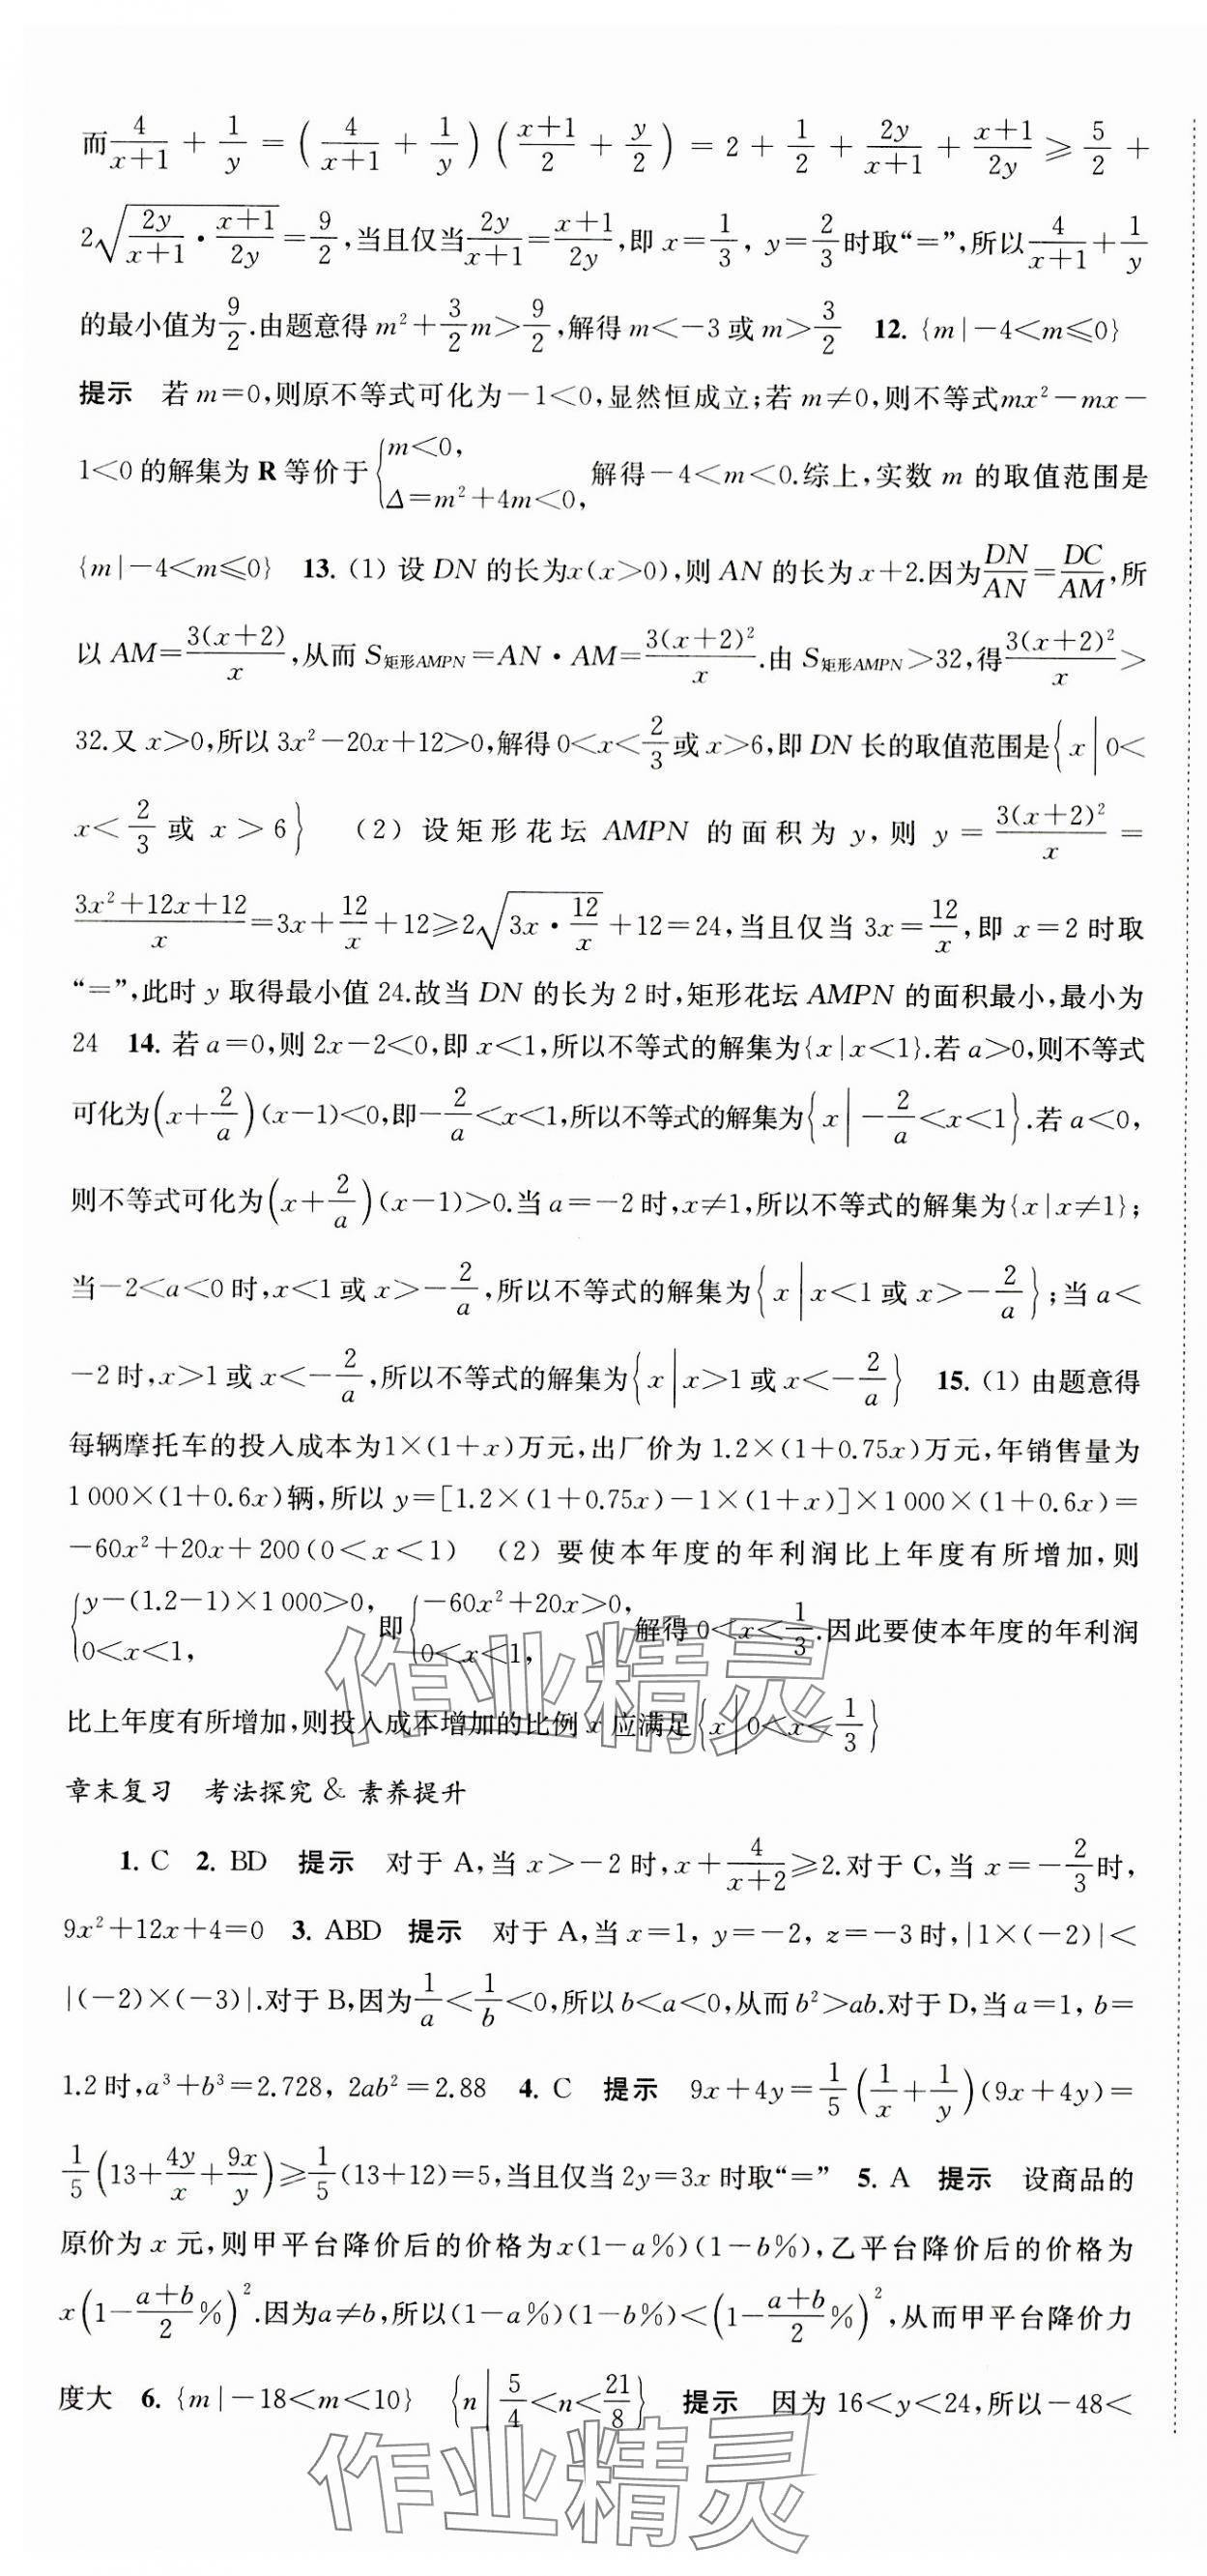 而4/(x+1)+1/y=(4/(x+1)+1/y)((x+1)/2+y/2)=2+1/2+2y/(x+1)+(x+1)/2y≥5/2+
2√(2y/(x+1)·(x+1)/2y)=9/2,当且仅当2y/(x+1)=(x+1)/2y,即 x=1/3, y=2/3时取“=”,所以4/(x+1)+1/y
的最小值为9/2.由题意得 m²+3/2m>9/2,解得 m<-3或 m>3/2 12. {m|-4<m≤0}
提示 若 m=0,则原不等式可化为-1<0,显然恒成立;若 m≠0,则不等式mx²-mx-
1<0的解集为 R 等价于{m<0, Δ=m²+4m<0, 解得-4<m<0.综上,实数 m 的取值范围是
{m|-4<m≤0} 13. (1) 设 DN 的长为x(x>0),则 AN 的长为 x+2.因为DN/AN=DC/AM,所
以 AM=3(x+2)/x,从而 S矩形AMPN=AN·AM=3(x+2)²/x.由 S矩形AMPN>32,得3(x+2)²/x>
32.又 x>0,所以 3x²-20x+12>0,解得 0<x<2/3或 x>6,即 DN 长的取值范围是{x|0<
x<2/3 或 x>6} (2) 设矩形花坛 AMPN 的面积为 y,则 y=3(x+2)²/x=
(3x²+12x+12)/x=3x+12/x+12≥2√(3x·12/x)+12=24,当且仅当 3x=12/x,即 x=2 时取
“=”,此时 y 取得最小值 24.故当 DN 的长为 2 时,矩形花坛 AMPN 的面积最小,最小为
24 14. 若 a=0,则 2x-2<0,即 x<1,所以不等式的解集为{x|x<1}.若 a>0,则不等式
可化为(x+2/a)(x-1)<0,即-2/a<x<1,所以不等式的解集为{x|-2/a<x<1}.若 a<0,
则不等式可化为(x+2/a)(x-1)>0.当 a=-2 时,x≠1,所以不等式的解集为{x|x≠1};
当-2<a<0时,x<1或 x>-2/a,所以不等式的解集为{x|x<1或 x>-2/a};当 a<
-2时,x>1或 x<-2/a,所以不等式的解集为{x|x>1或 x<-2/a} 15. (1) 由题意得
每辆摩托车的投入成本为1×(1+x)万元,出厂价为 1.2×(1+0.75x)万元,年销售量为
1 000×(1+0.6x)辆,所以 y=[1.2×(1+0.75x)-1×(1+x)]×1 000×(1+0.6x)=
-60x²+20x+200(0<x<1) (2) 要使本年度的年利润比上年度有所增加,则
{y-(1.2-1)×1 000>0, 0<x<1, 即{-60x²+20x>0, 0<x<1, 解得 0<x<1/3.因此要使本年度的年利润
比上年度有所增加,则投入成本增加的比例 x 应满足{x|0<x<1/3}
章末复习 考法探究 & 素养提升
1. C 2. BD 提示 对于 A,当 x>-2 时,x+4/(x+2)≥2.对于 C,当 x=-2/3时,
9x²+12x+4=0 3. ABD 提示 对于 A,当 x=1, y=-2, z=-3时,|1×(-2)|<
|(-2)×(-3)|.对于 B,因为1/a<1/b<0,所以b<a<0,从而 b²>ab.对于 D,当 a=1, b=
1.2时,a³+b³=2.728, 2ab²=2.88 4. C 提示 9x+4y=1/5(1/x+1/y)(9x+4y)=
1/5(13+4y/x+9x/y)≥1/5(13+12)=5,当且仅当 2y=3x 时取“=” 5. A 提示 设商品的
原价为 x 元,则甲平台降价后的价格为x(1-a%)(1-b%),乙平台降价后的价格为
x(1-(a+b)/2%)².因为a≠b,所以(1-a%)(1-b%)<(1-(a+b)/2%)²,从而甲平台降价力
度大 6. {m|-18<m<10} {n|5/4<n<21/8} 提示 因为 16<y<24,所以-48<
作业精灵
作业精灵